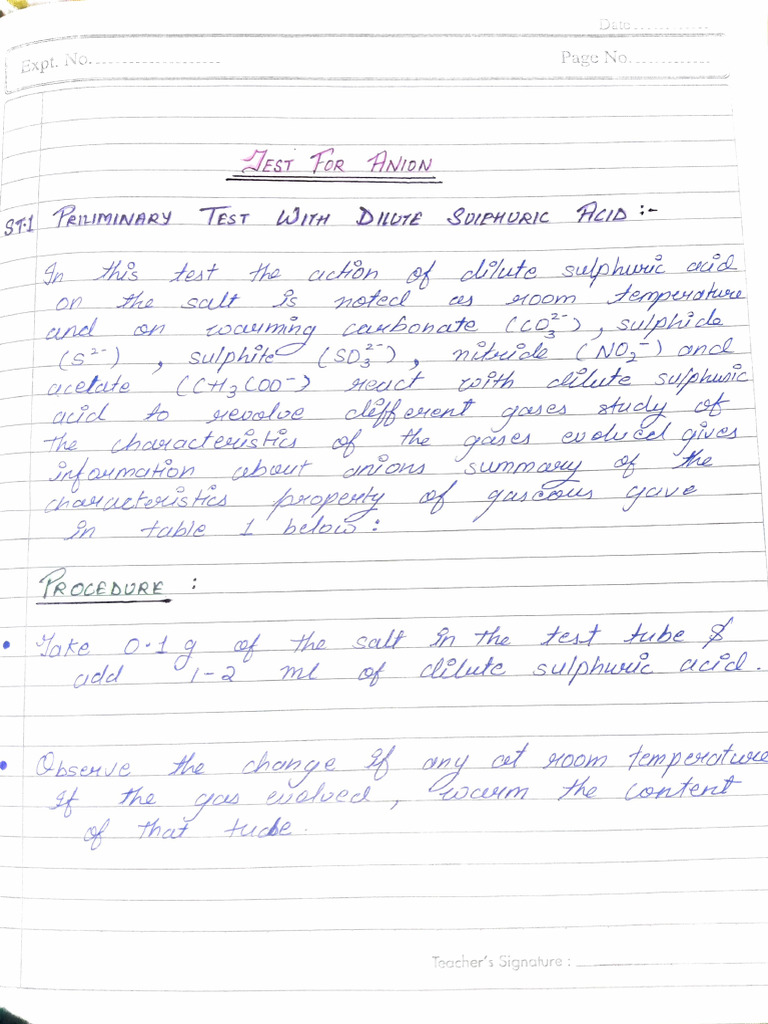 Date............
Expt. No....................
Page No.............
TEST FOR ANION
ST.1 PRILIMINARY TEST WITH DILUTE SULPHURIC ACID :-
In this test the action of dilute sulphuric acid
on the salt is noted as room temperature
and on warming carbonate (CO₃²⁻), sulphide
(S²⁻) , sulphite (SO₃²⁻), nitride (NO₂⁻) and
acetate (CH₃COO⁻) react with dilute sulphuric
acid to revolve different gases study of
the characteristics of the gases evolued gives
information about anions summary of the
characteristics property of gaseous gave
in table 1 below:
PROCEDURE :
• Take 0.1 g of the salt in the test tube &
add 1-2 ml of dilute sulphuric acid.
• Observe the change if any at room temperature
If the gas evolved, warm the content
of that tube.
Teacher's Signature : ____________